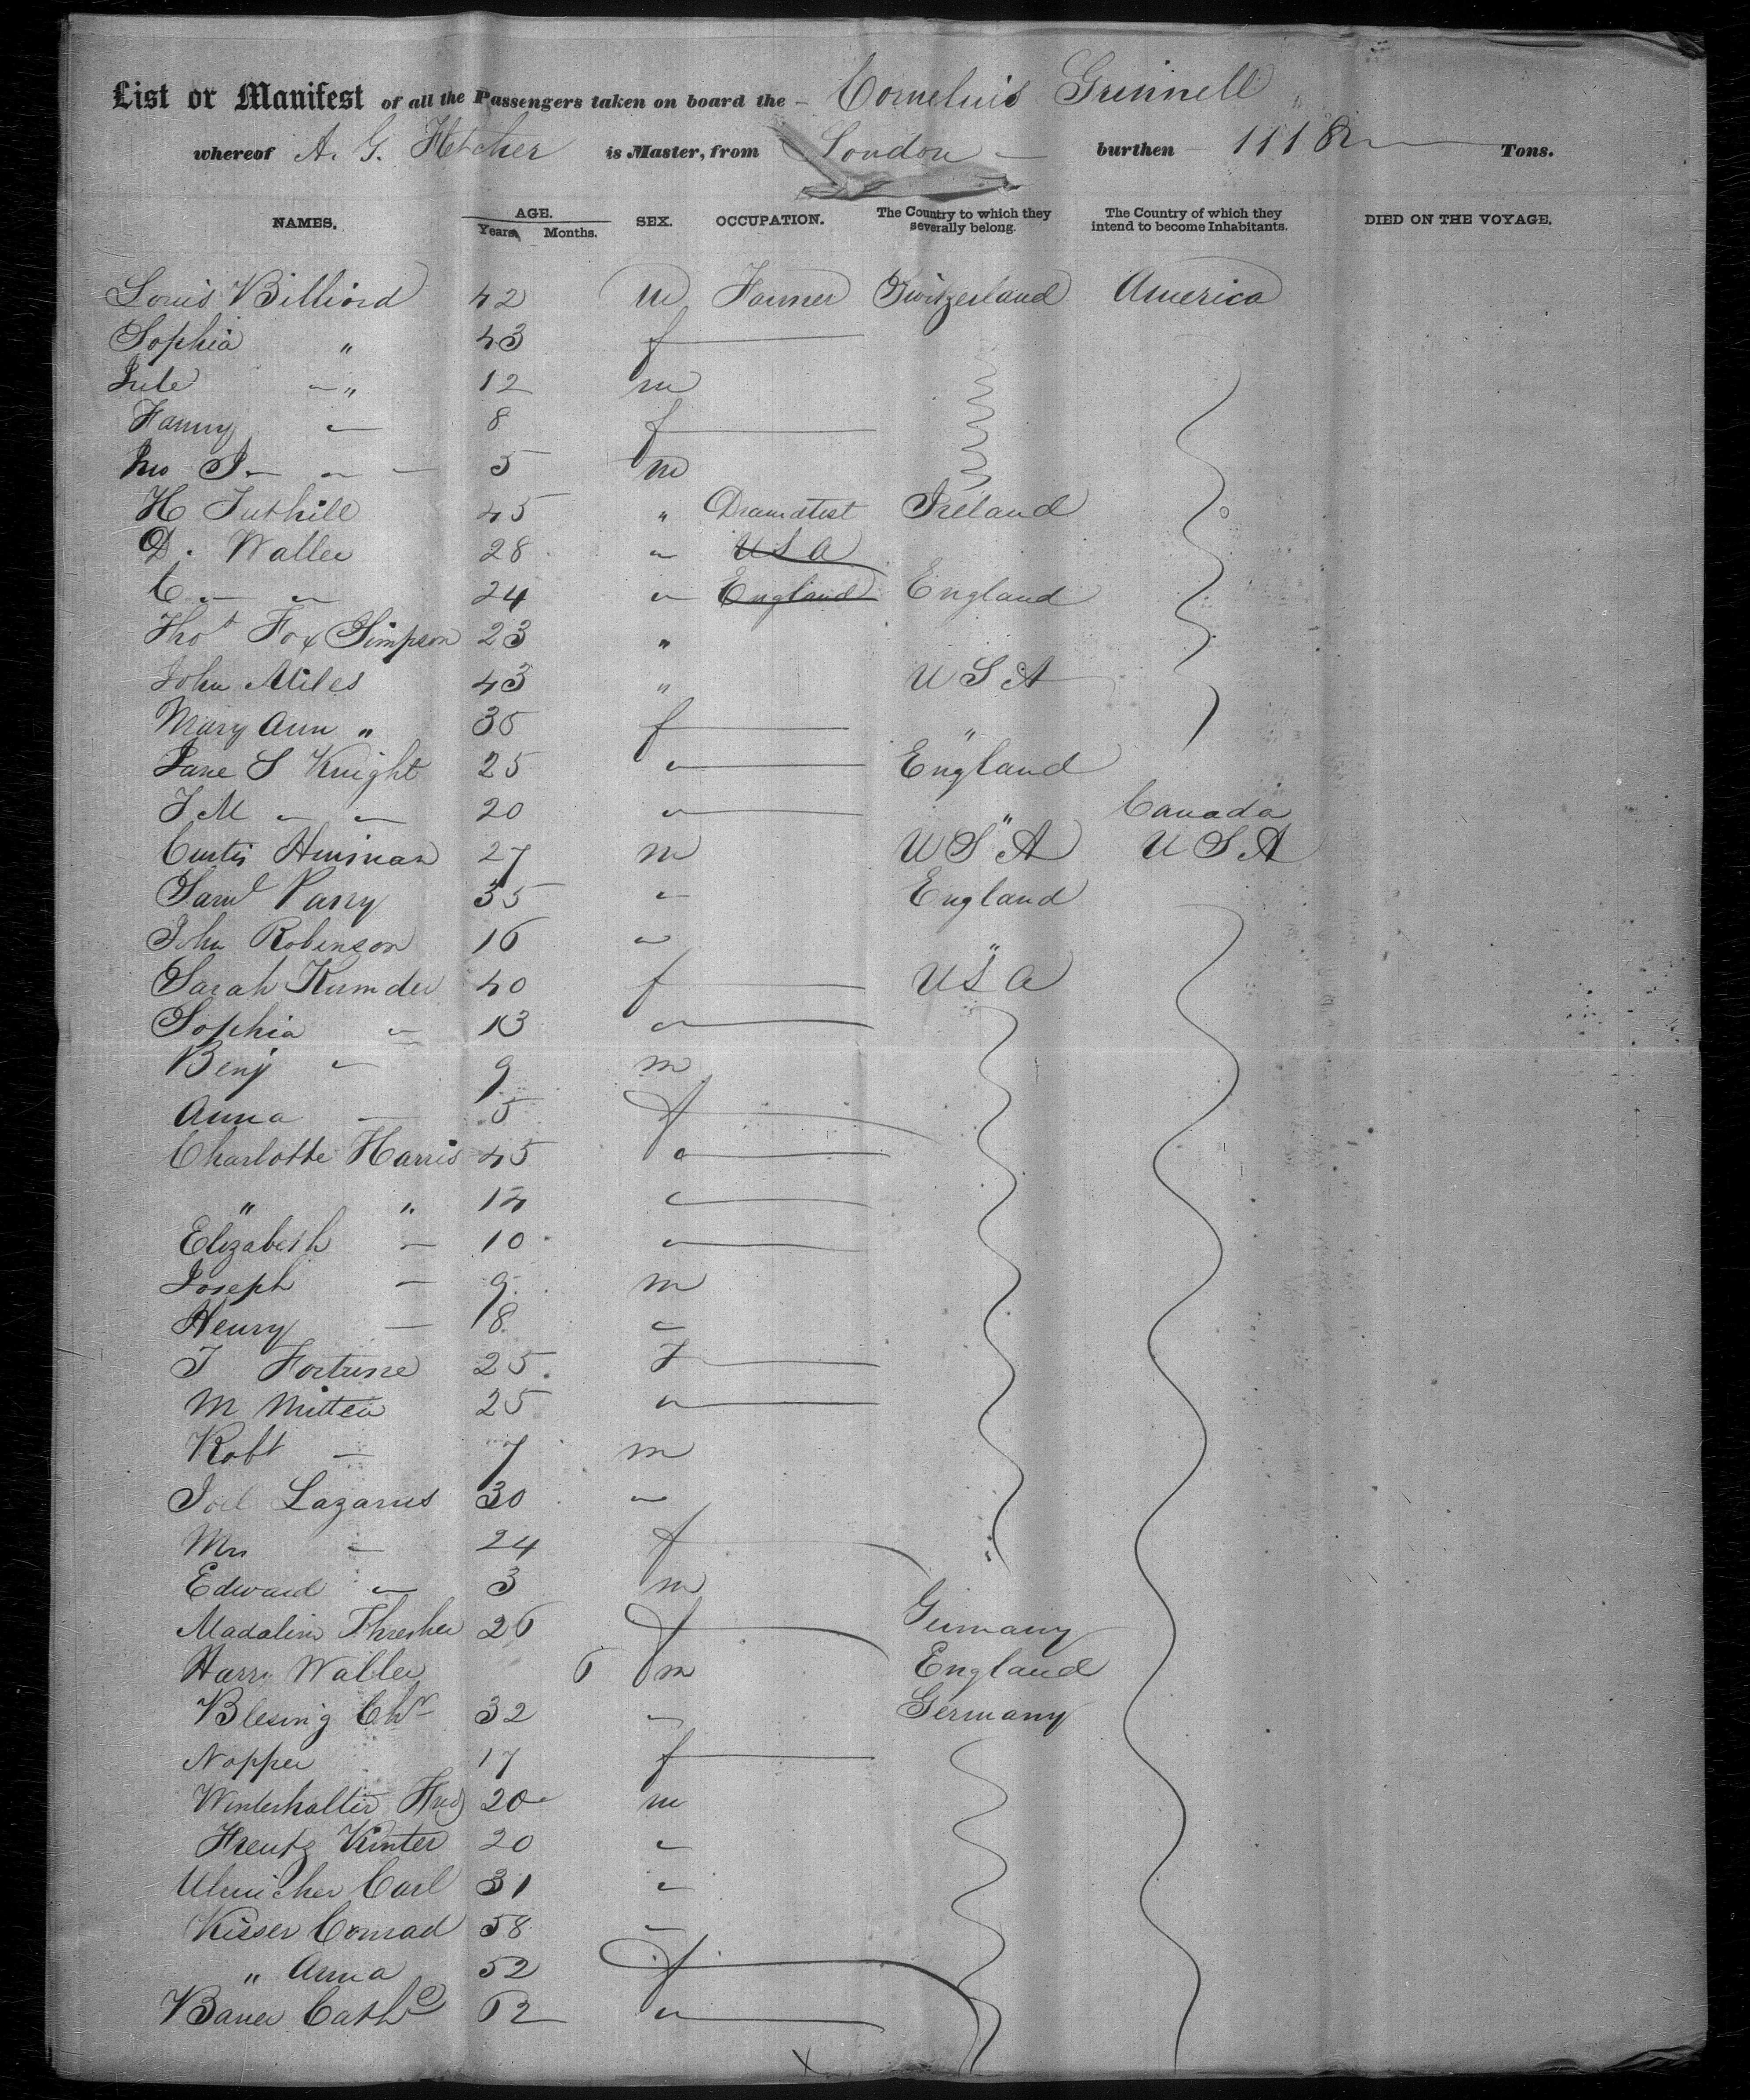 List or Manifest of all the Passengers taken on board the - Cornelius Grinnell
whereof A. G. Fletcher is Master, from London - burthen - 1118 Tons.
NAMES. AGE. Years, Months. SEX. OCCUPATION. The Country to which they severally belong. The Country of which they intend to become Inhabitants. DIED ON THE VOYAGE.
Louis Billiord 42 m Farmer Switzerland America
Sophia " 43 f
Jule " 12 m
Fanny " 8 f
Jno J " 5 m
H Tuthill 45 " Dramatist Ireland
D. Waller 28 " USA
C " " 24 " England England
Thos Fox Simpson 23 "
John Miles 43 " USA
Mary Ann " 35 f "
Jane S Knight 25 " England
J. M " " 20 " " Canada
Curtis Hinman 27 m USA USA
Saml Parry 35 " England
John Robinson 16 " "
Sarah Kumder 40 f USA
Sophia " 13 "
Benj " 9 m
Anna " 5 f
Charlotte Harris 45 "
" " 14 "
Elizabeth - 10 "
Joseph - 9 m
Henry - 8 "
J Fortune 25 f
M Mitten 25 "
Robt - 7 m
Joel Lazarus 30 "
Mrs - 24 f
Edward " 3 m
Madalin Thresher 26 f Germany
Harry Waller 6 m England
Blesing Chr 32 " Germany
Nopper 17 f
Winterhalter Fred 20 m
Frentz Kinter 20 "
Carl 31 "
Kisser Conrad 58 "
" Anna 52 f
Bauer Cathe 62 "